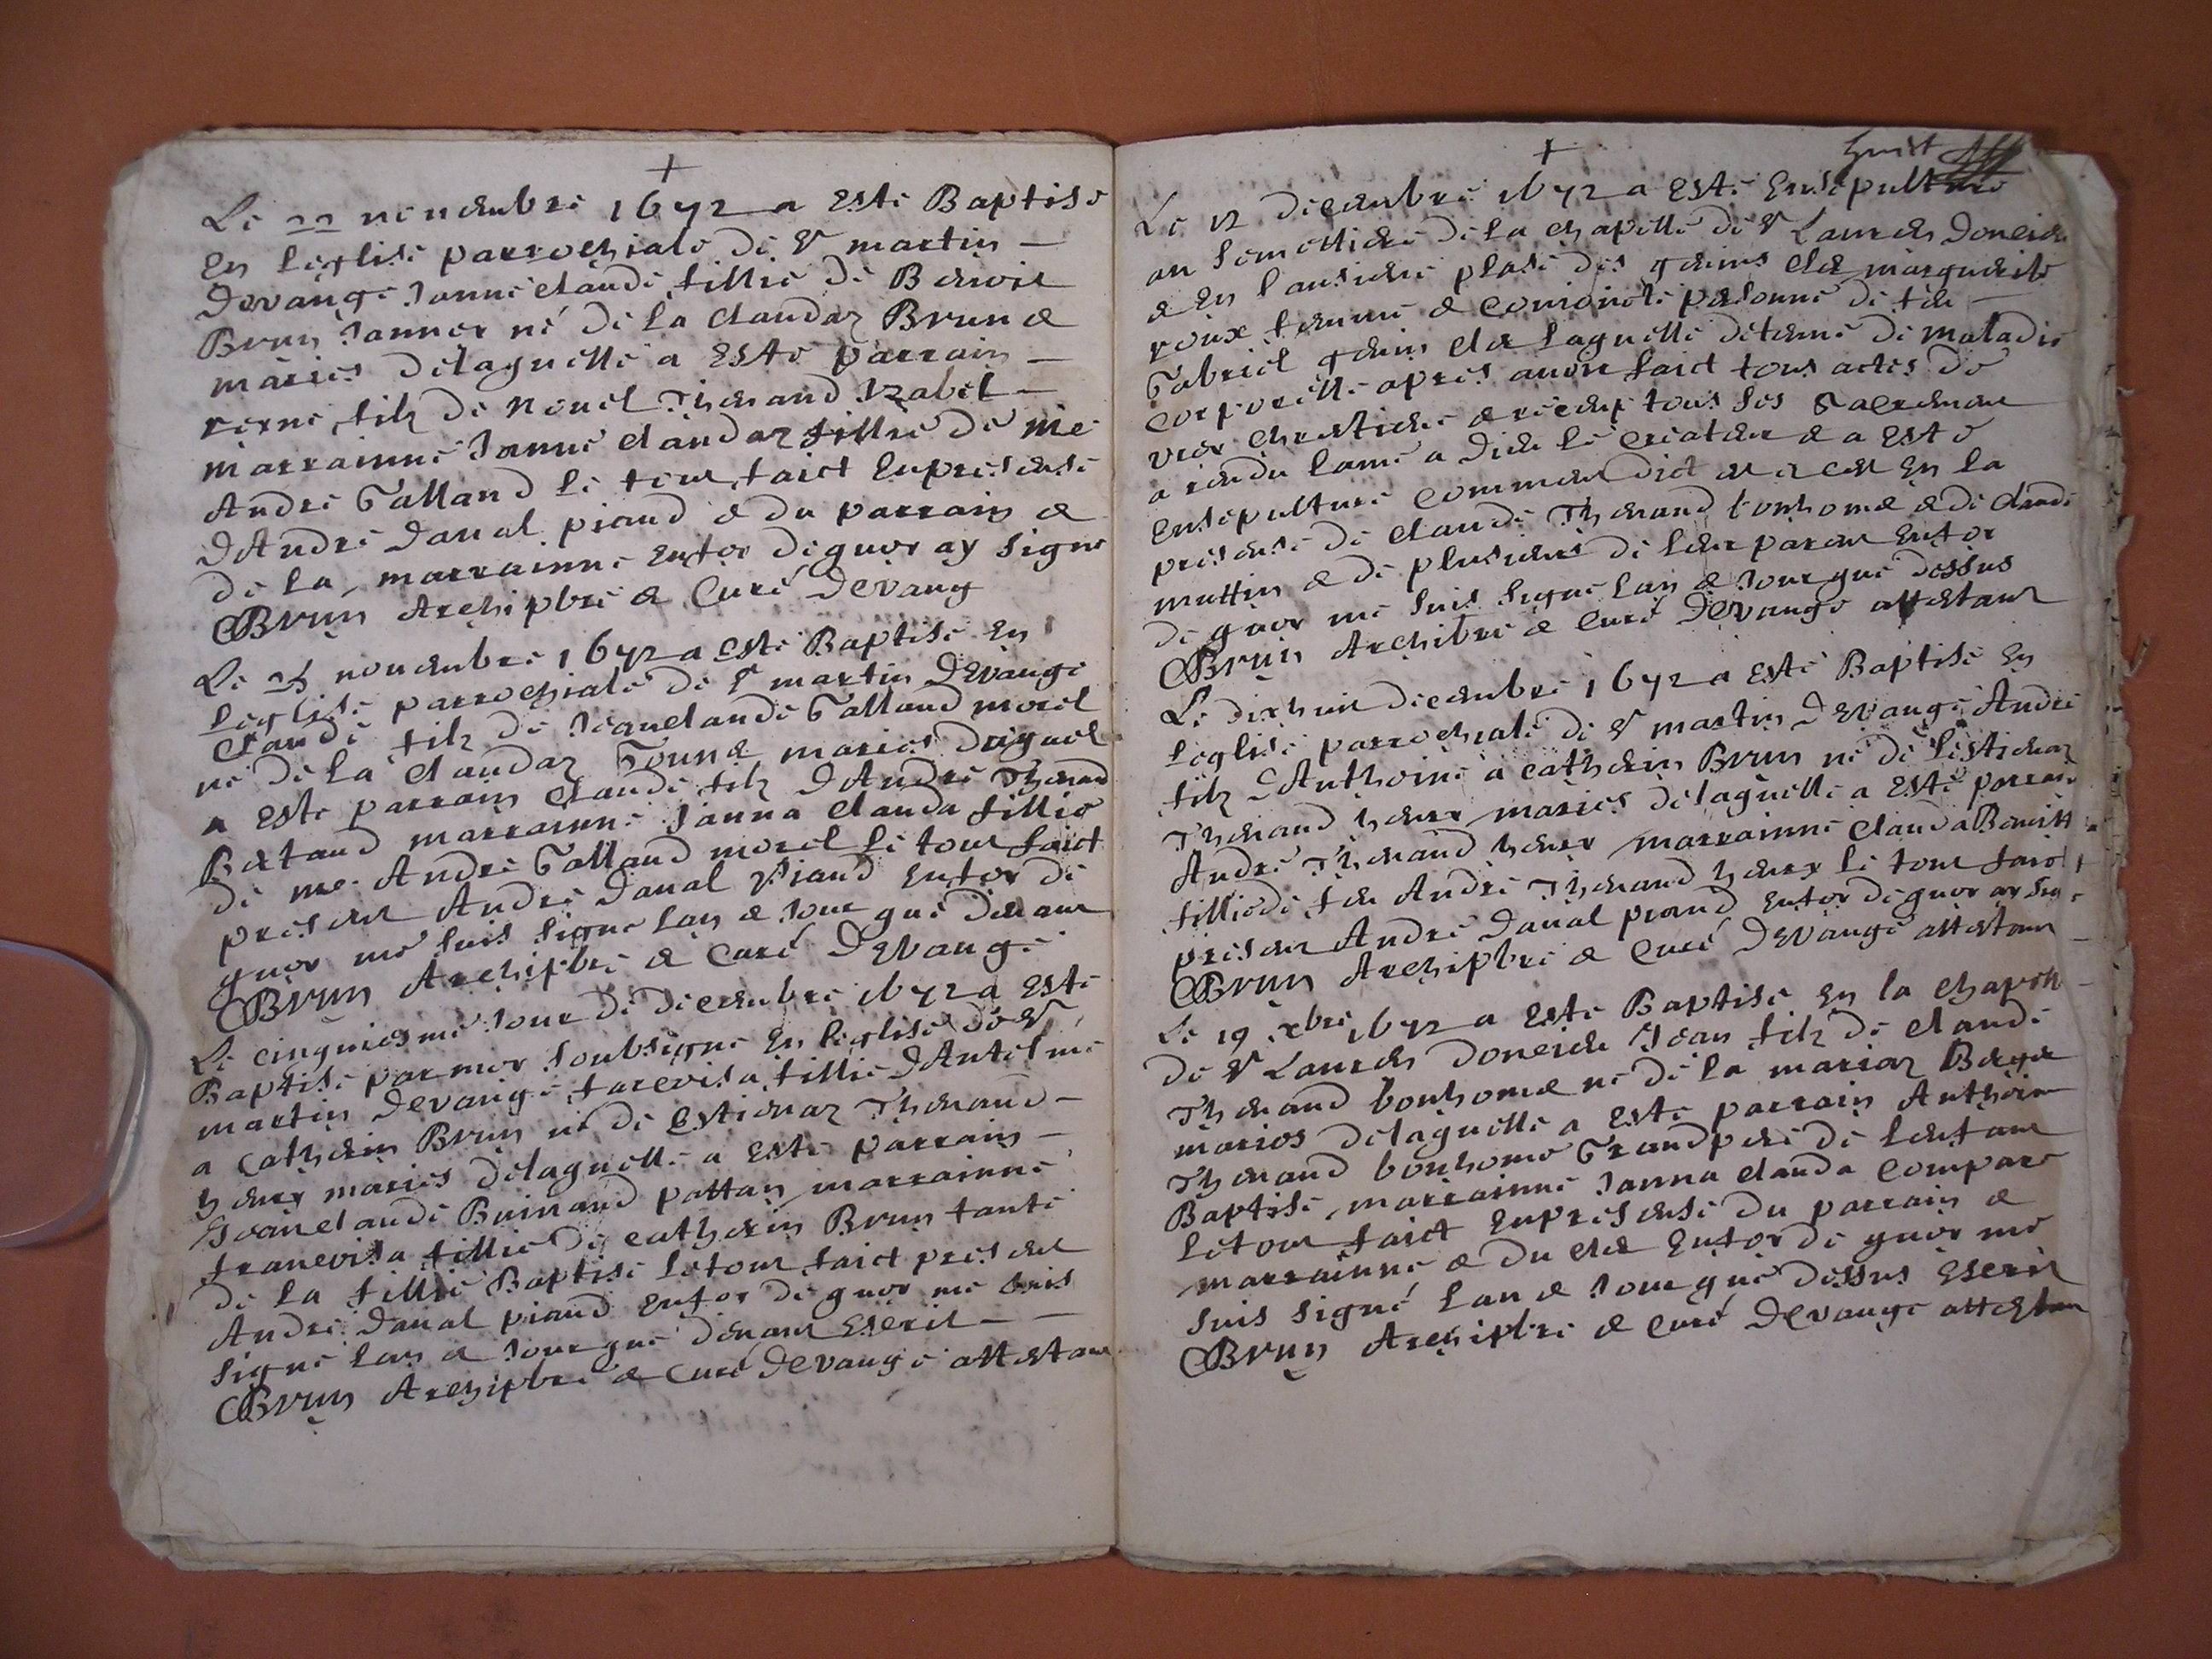 +
Le 22 novembre 1672 a este Baptise
En leglise parrochiale de St martin
Devange Janne claude fillie de Benoit
Brun Jannor né de la claudaz Brun et
maries delaquelle a este parrain
rexne filz de nouel Thenand Izabel
marrainne Janne claudaz fillie de me
Andre Galland le tout faict En presense
dAndre Danal piand et du parrain et
de la marrainne En foy de quoy ay signe
Brun Archipbre et Curé Devang
Le 25 novembre 1672 a este Baptise En
leglise parrochiale de St martin Devange
Claude filz de Jeanclaude Galland morel
né de la claudaz maries duquel
a este parrain claude filz dAndre Thenand
Bataud marrainne Janna clauda fillie
de me Andre Galland morel le tout faict
present Andre Danal Piand En foy de
quoy me suis signe lan et Jour que devant
Brun Archipbre et Curé Devange
Le cinquiesme Jour de decembre 1672 a este
Baptise par moy soubsigne En leglise de St
martin Devange francoisa fillie dAntelme
a Catherin Brun né de Estienaz Thenand
henry maries delaquelle a este parrain
Jeanclaude Buinand pattan marrainne
francoisa fillie de catherin Brun tante
de la fillie Baptise le tout faict present
Andre Danal piand En foy de quoy me suis
signe lan et Jour que devant Escrit
Brun Archipbre et Curé Devange attestant
huict
+
Le 12 decembre 1672 a este Ensepulture
au semettiere de la chapelle de St Laurens Doncieu
et En lansiene plase des gemes cler marguerite
roux femme et conjointe persone de feu
Gabriel gemin cler laquelle detenue de maladie
corporelle apres avoir faict tous actes de
vray chrestiene et receup tous ses Sacremans
a randu lame a Dieu le creatour et a este
Ensepulture comme dict et a cest En la
presense de claude Thenand bonhome et de claude
muttin et de plusieurs de leur parans En foy
de quoy me suis signe lan et Jour que dessus
Brun Archibre et Curé Devange attestant
Le dixhuit decembre 1672 a este Baptise En
leglise parrochiale de St martin Devange Andre
filz dAnthoine a catherin Brun né de lestienaz
Thenand henry maries delaquelle a este parrain
Andre Thenand henry marrainne clauda Benoitte
fillie de feu Andre Thenand henry le tout faict
present Andre Danal piand En foy de quoy ay signe
Brun Archipbre et Curé Devange attestant
Le 19 xbre 1672 a este Baptise En la chapelle
de St Laurens Doncieu Jean filz de claude
Thenand bonhome né de la mariaz Berger
maries delaquelle a este parrain Anthoine
Thenand bonhome Grandpere de lenfant
Baptise marrainne Janna clauda compare
le tout faict En presense du parrain et
marrainne et du cler En foy de quoy me
suis signé lan et Jour que dessus Escrit
Brun Archipbre et Curé Devange attestant